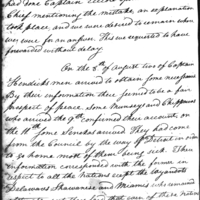 had done Captain
Chief mentioning the mistake, an explanation
took place, and we were desired to remain where
we were for an answer. This we requested to have
forwarded without delay.
On the 8th of August two of Captain
Hendricks men arrived to obtain some
By their information there seemed to be a fair
prospect of peace. Some Munseys and Chippewas
who arrived the 9th confirmed their account, on
the 11th some Senekas arrived. They had come
from the Council by the way of Detroit in order
to go home most of them being sick. Their
information corresponded with the former in
respect to all the Nations except the Wyandots
Delawares Shawanese and Miamies who remained
that even of these nations